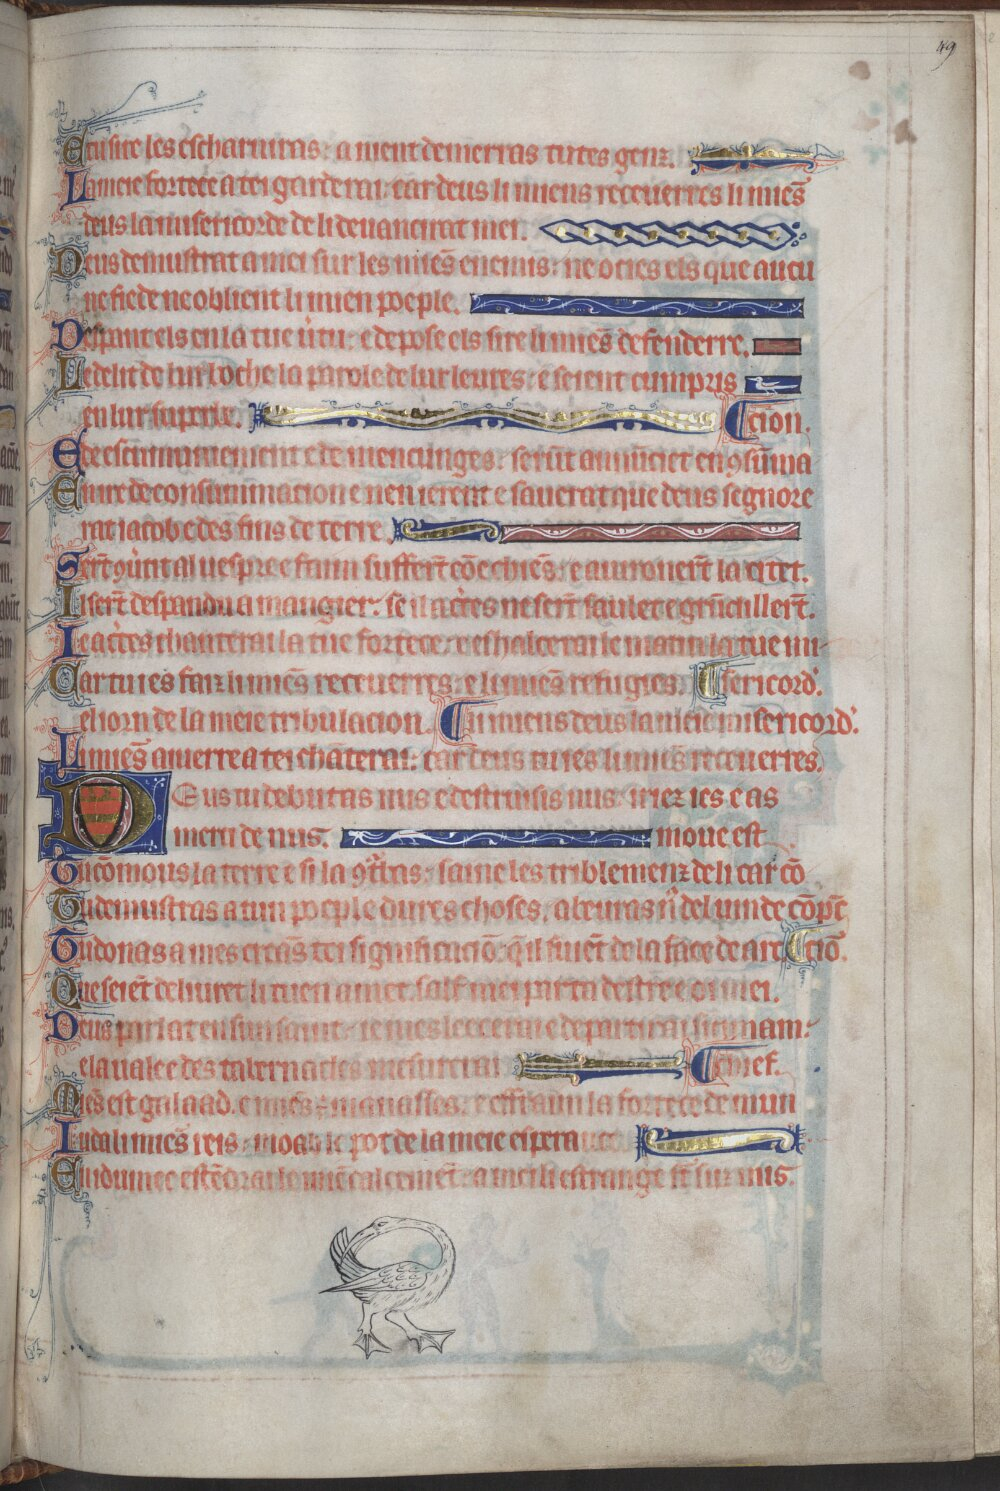 49
Et tu sire les escharniras: a nient demerras tutes genz.
La meie fortece a tei garderai: car deus li miens receuerres li miēs
deus la misericorde de li deuancirat mei.
Deus demustrat a mei sur les miēs enemis: ne ocies els que aucu
ne fiede ne oblient li mien poeple.
Despant els en la tue u̾tu: e depose els sire li miēs defenderre.
Le delit de lur boche la parole de lur leures: e seient cumpris
en lur superbe. cion.
E de escumuniement e de mencunges: serūt annūciet en ꝯsūma
En ire de consummacion e nen ierent e sauerat que deus segnore
rat iacob e des fins de terre.
Ser̄t ꝯu̾tit al uespre e faim suffer̄t cōe chiēs: e auironer̄t la citet.
Il ser̄t despandu a mangier: se il ac̾tes ne ser̄t saulet e grūcillerūt.
Ie acertes chanterai la tue fortece: e eshalcerai le matin la tue mi-
Car tu ies faiz li miēs receuerres: e li miēs refugies. sericord̾.
el iorn de la meie tribulacion. Li miens deus la meie misericord̾.
Li miēs aiuerre a tei chāterai: car deus tu ies li miēs receuerres.
Deus tu debutas nus e destruisis nus: iriez ies e as
merci de nus. moue est
Tu cōmous la terre e si la ꝯt̾bas: saine les triblemenz de li car cō
Tu demustras a tun poeple dures choses. abeuras nꝰ del uin de cōpūc
Tu donas a mes cremās tei significaciō: q̄ il fuiēt de la face de arc ciō.
Que seiēt deliuret li tuen amet. salf mei par ta destre e oi mei.
Deus parlat en sun saint: ie me esleecerai e departirai sicimam:
e la ualee des tabernacles mesurerai chief.
Miēs est galaad. e miēs ē manasses. e effraim la fortece de mun
Iuda li miēs reis: moab le pot de la meie esperance.
En idumee estēdrai le miē calcemēt: a mei li estrange sūt suzmis.